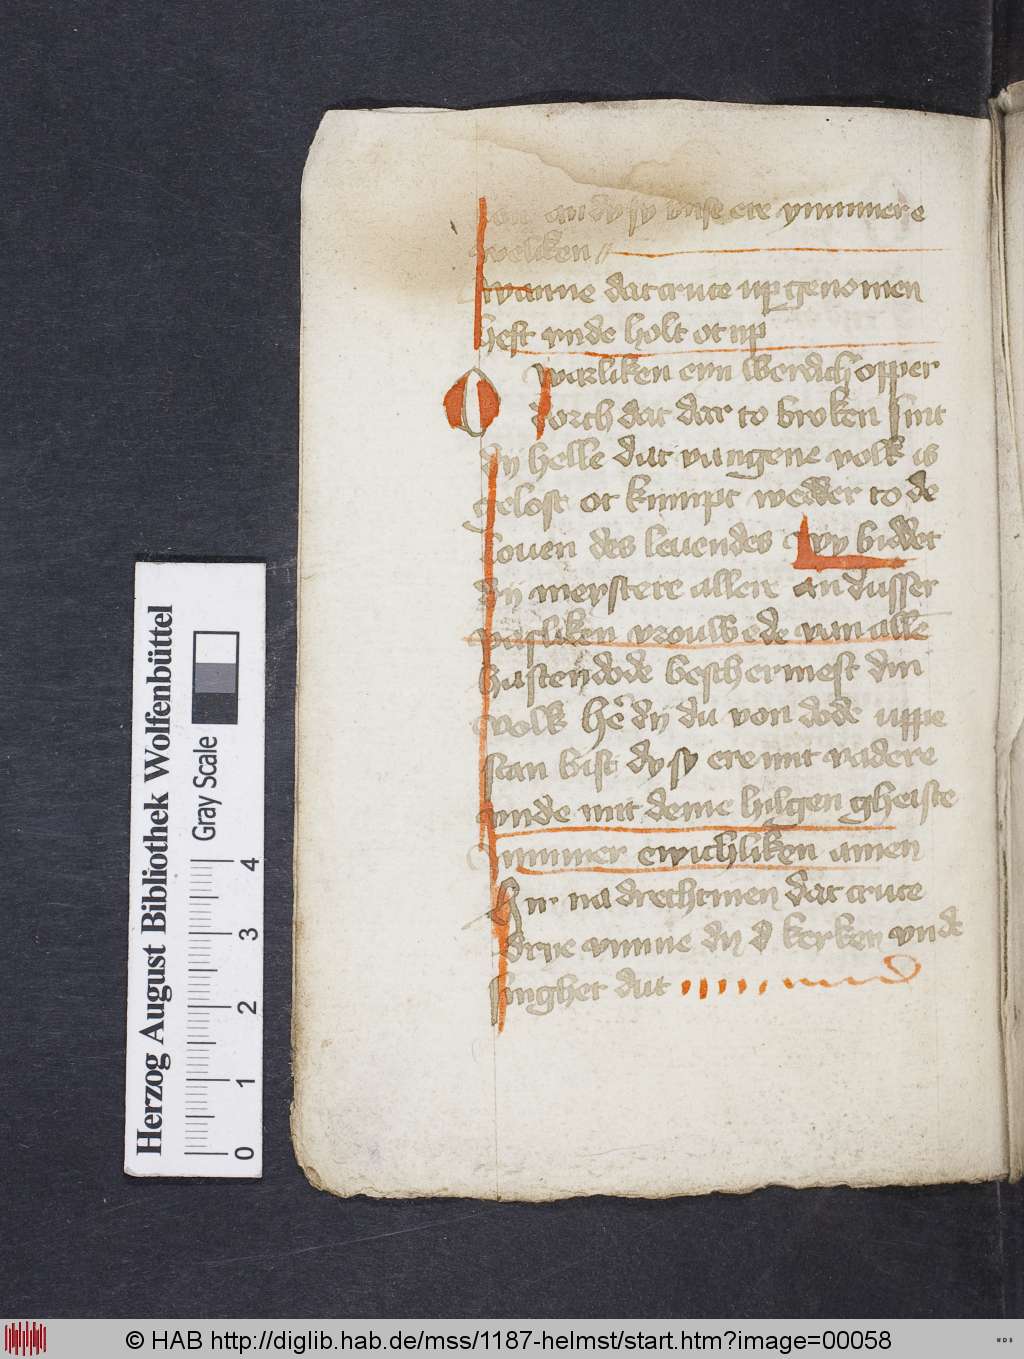 an dy sy unse ere ymmmer e
weliken
wanne dat cruce up genomen
heft vnde holt ot up
O warliken eyn werdich opper
dorch dat dar to broken sint
dy helle dat vangene volk is
gelost ot kumpt wedder to de
louen des leuendes wy biddet
dy meystere allere an dusser
pasliken vrouwede van alle
hastendode beschermest din
volk he dy du von dode uppe
stan bist dy sy ere mit vadere
vnde mit deme hilgen gheiste
ymmmer ewichliken amen
Hir na drecht men dat cruce
drye vmme dy d kerken vnde
singhet dat
Herzog August Bibliothek Wolfenbüttel
Gray Scale
0 1 2 3 4
© HAB http://diglib.hab.de/mss/1187-helmst/start.htm?image=00058